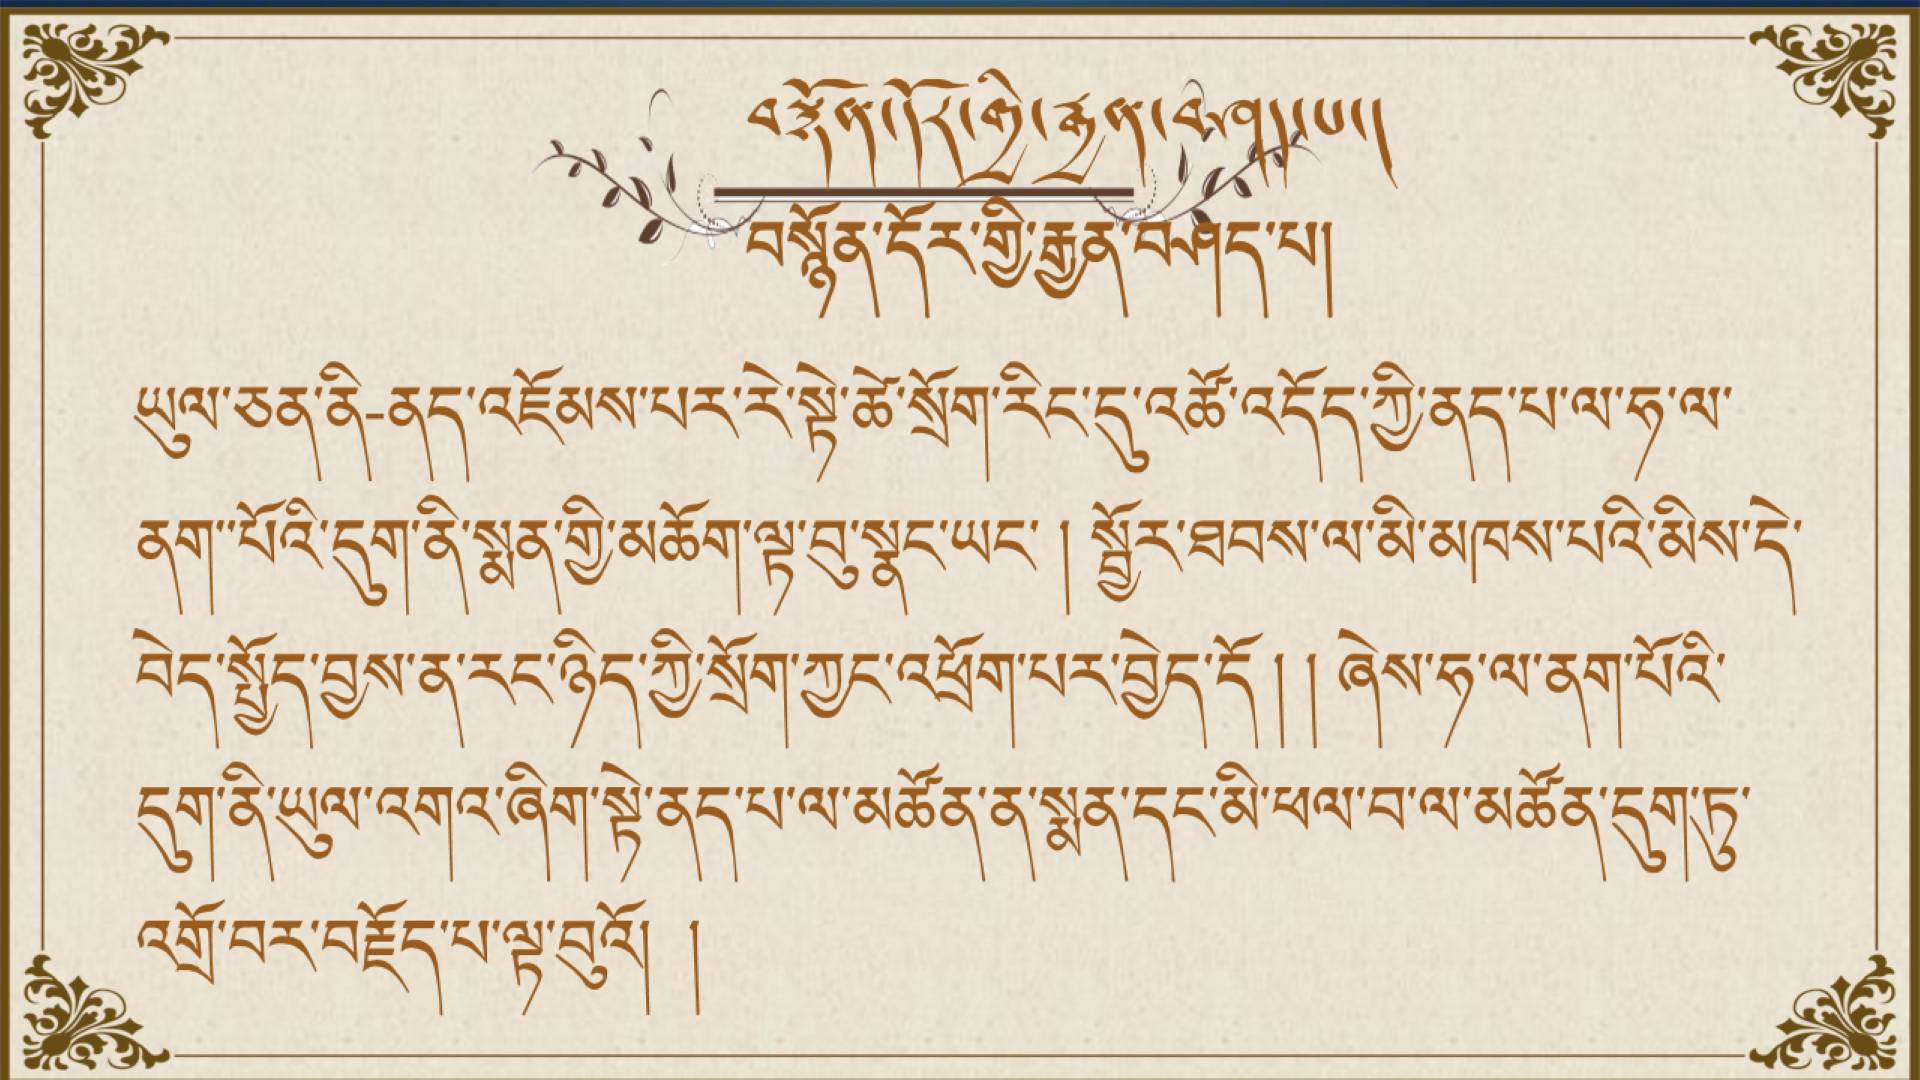 བསྙོན་དོར་གྱི་རྒྱན་བཤད་པ།
བསྙོན་དོར་གྱི་རྒྱན་བཤད་པ།
ཡུལ་ཅན་ནི-ནད་འཇོམས་པར་རེ་སྟེ་ཚེ་སྲོག་རིང་དུ་འཚོ་འདོད་ཀྱི་ནད་པ་ལ་ཧ་ལ་
ནག་་པོའི་དུག་ནི་སྨན་གྱི་མཆོག་ལྟ་བུ་སྣང་ཡང་ । སྦྱོར་ཐབས་ལ་མི་མཁས་པའི་མིས་དེ་
བེད་སྤྱོད་བྱས་ན་རང་ཉིད་ཀྱི་སྲོག་ཀྱང་འཕྲོག་པར་བྱེད་དོ །། ཞེས་ཧ་ལ་ནག་པོའི་
དུག་ནི་ཡུལ་འགའ་ཞིག་སྟེ་ནད་པ་ལ་མཚོན་ན་སྨན་དང་མི་ཕལ་བ་ལ་མཚོན་དུག་ཏུ་
འགྲོ་བར་བརྗོད་པ་ལྟ་བུའོ། །